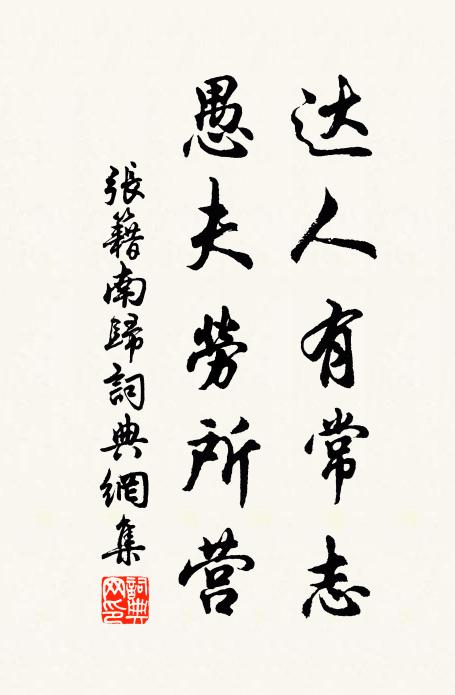 达人有常志
愚夫劳所营
張籍南歸詞典網集
詞典网印